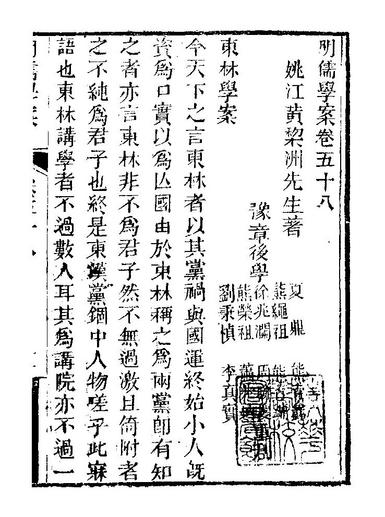 明儒學案卷五十八
姚江黃棃洲先生著
豫章後學
夏鼎
熊繩祖
徐兆瀾
熊榮祖
劉秉楨
李真實
東林學案
今天下之言東林者以其黨禍與國運終始小人既
資為口實以為亾國由於東林稱之為兩黨即有知
之者亦言東林非不為君子然不無過激且倚附者
之不純為君子也終是東漢黨錮中人物嗟乎此寐
語也東林講學者不過數人耳其為講院亦不過一